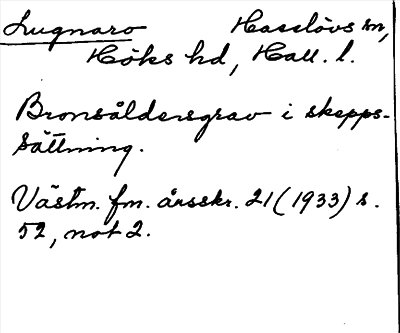 Lugnaro Hasslövs sn,
Höks hd, Hall. l.
Bronsåldersgrav i skepps-
sättning.
Västm. fm. årsskr. 21 (1933) s.
52, not 2.